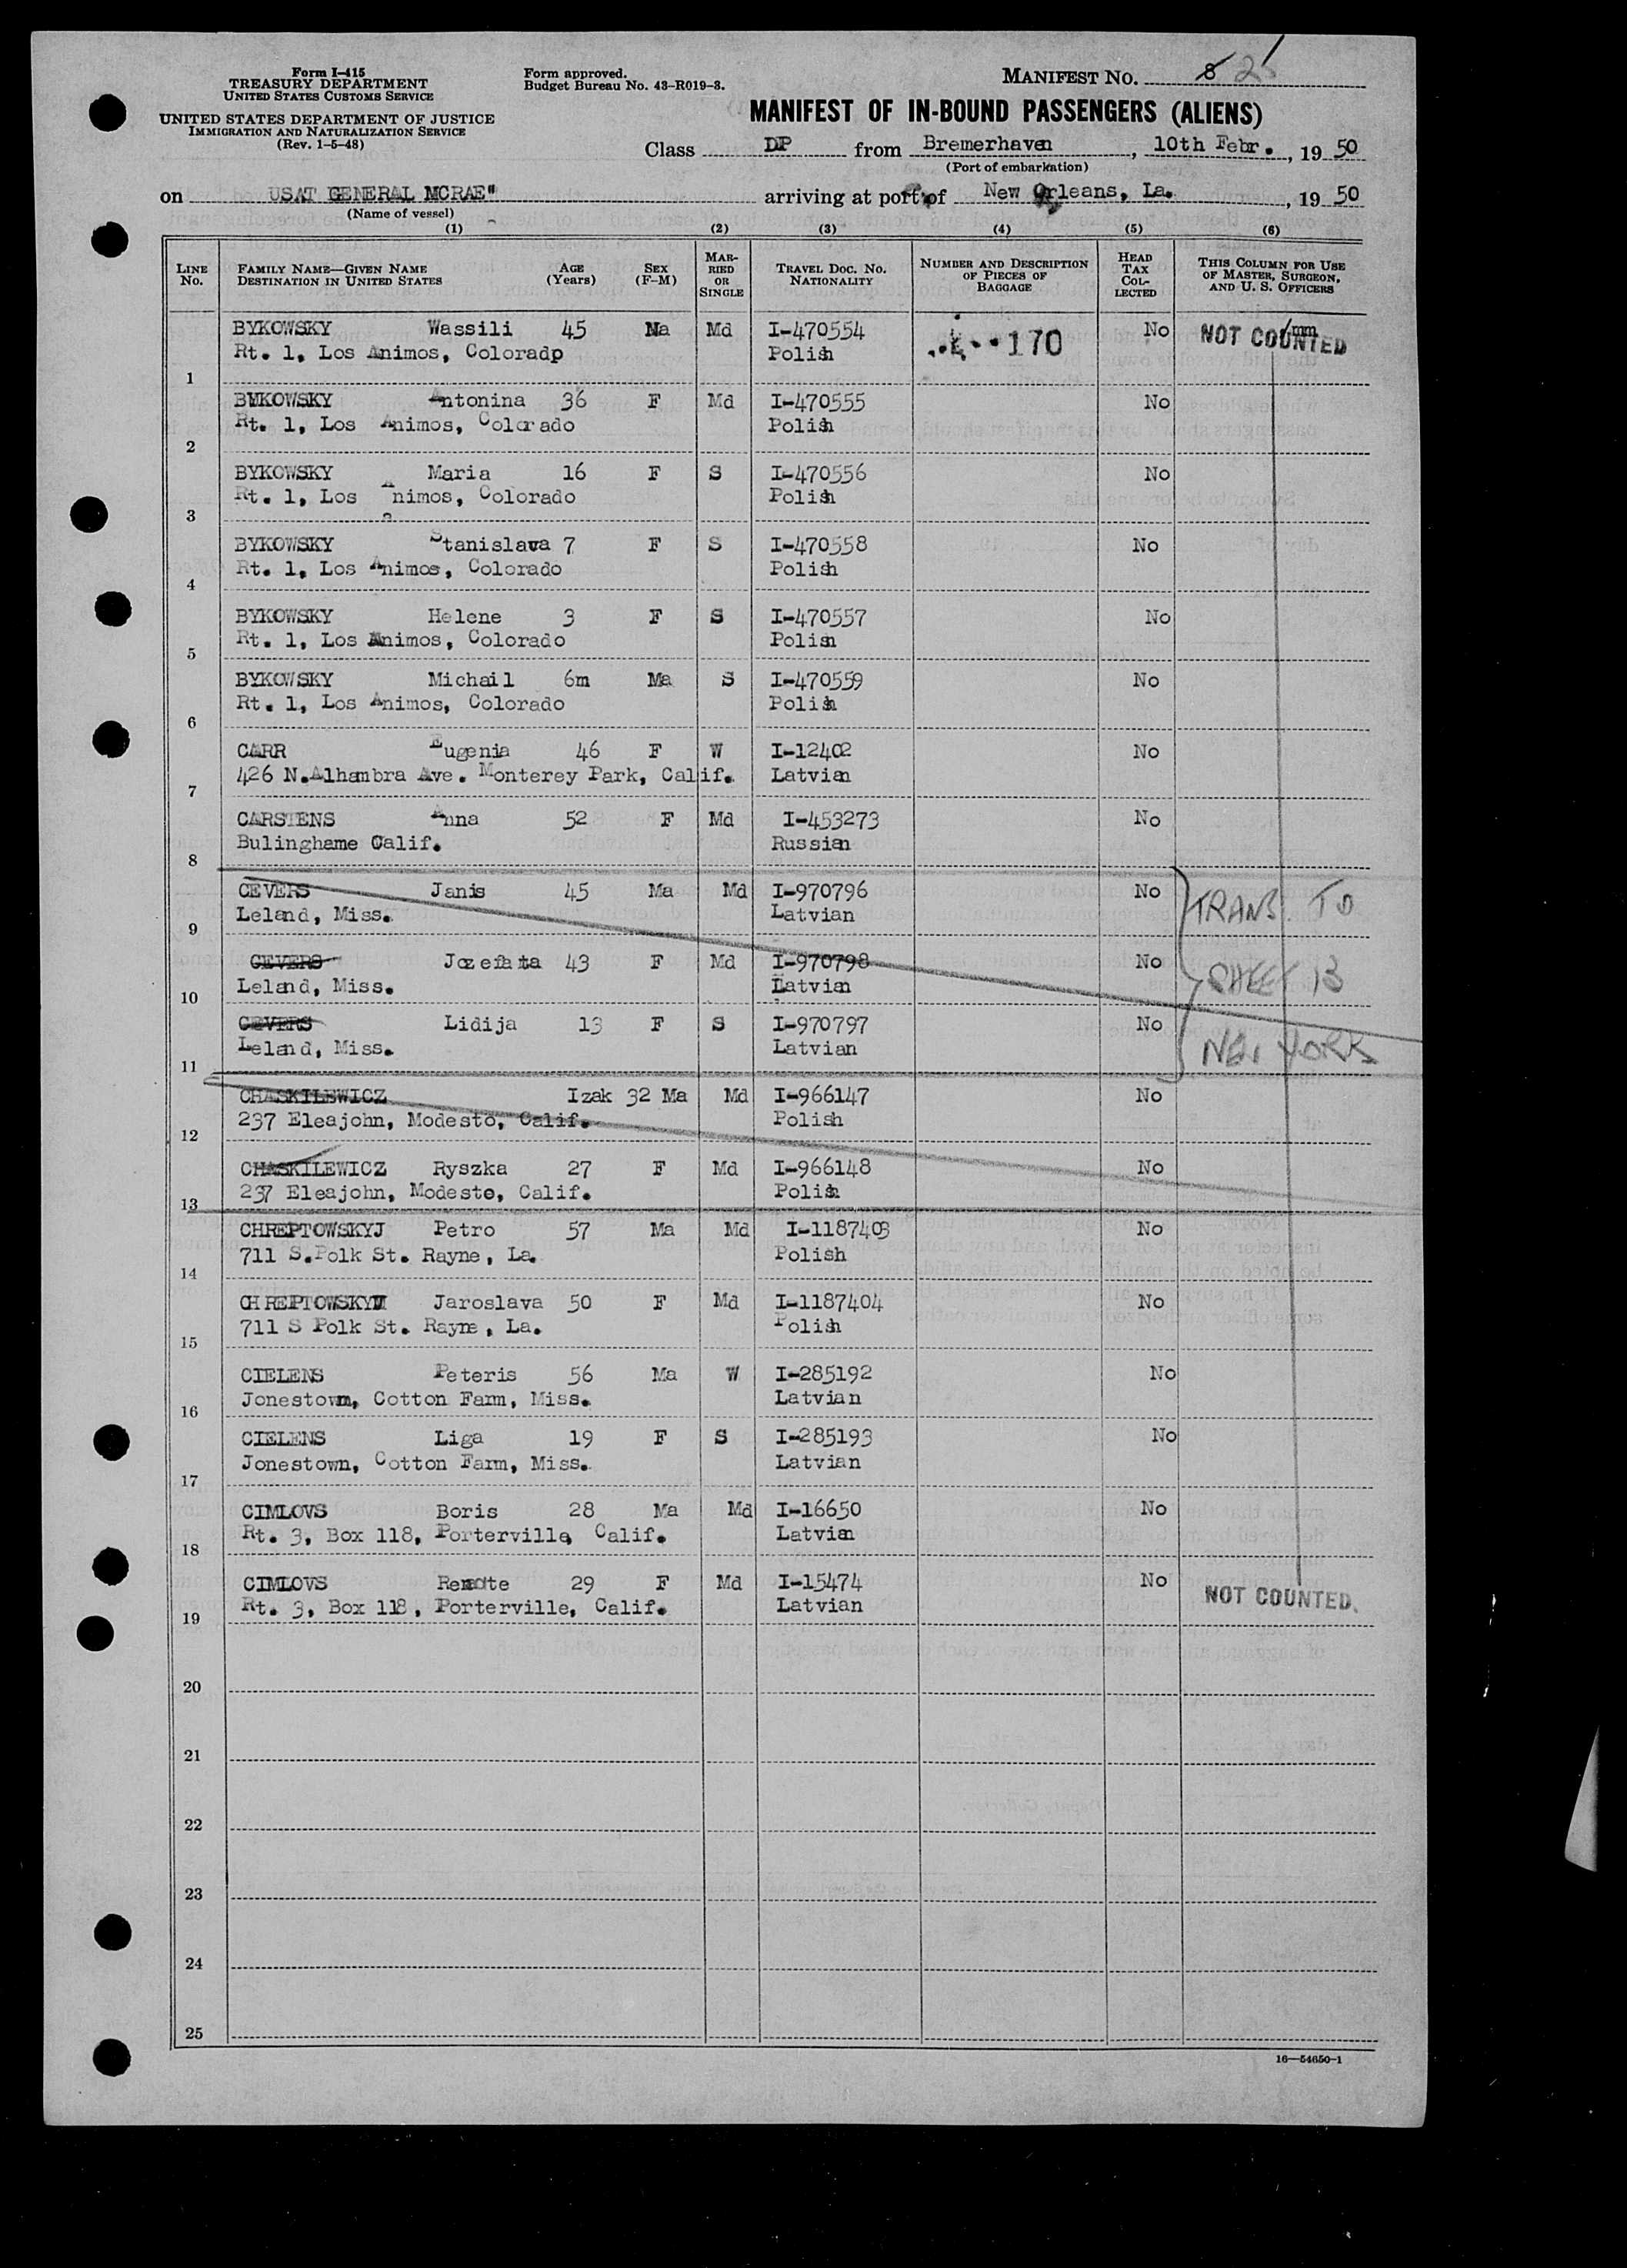 Form I-415
TREASURY DEPARTMENT
UNITED STATES CUSTOMS SERVICE
UNITED STATES DEPARTMENT OF JUSTICE
IMMIGRATION AND NATURALIZATION SERVICE
(Rev. 1-5-48)
Form approved.
Budget Bureau No. 43-R019-3.
MANIFEST NO. 8 2
MANIFEST OF IN-BOUND PASSENGERS (ALIENS)
Class DP from Bremerhaven, 10th Febr., 19 50
(Port of embarkation)
on USAT GENERAL MCRAE" arriving at port of New Orleans, La., 19 50
(Name of vessel)
(1) (2) (3) (4) (5) (6)
LINE NO. FAMILY NAME—GIVEN NAME DESTINATION IN UNITED STATES AGE (Years) SEX (F-M) MARRIED OR SINGLE TRAVEL DOC. NO. NATIONALITY NUMBER AND DESCRIPTION OF PIECES OF BAGGAGE HEAD TAX COLLECTED THIS COLUMN FOR USE OF MASTER, SURGEON, AND U. S. OFFICERS
BYKOWSKY Wassili 45 Ma Md I-470554 170 No NOT COUNTED
Rt. 1, Los Animos, Coloradp Polish
1
BYKOWSKY Antonina 36 F Md I-470555 No
Rt. 1, Los Animos, Colorado Polish
2
BYKOWSKY Maria 16 F S I-470556 No
Rt. 1, Los Animos, Colorado Polish
3
BYKOWSKY Stanislava 7 F S I-470558 No
Rt. 1, Los Animos, Colorado Polish
4
BYKOWSKY Helene 3 F S I-470557 No
Rt. 1, Los Animos, Colorado Polish
5
BYKOWSKY Michail 6m Ma S I-470559 No
Rt. 1, Los Animos, Colorado Polish
6
CARR Eugenia 46 F W I-12402 No
426 N.Alhambra Ave. Monterey Park, Calif. Latvian
7
CARSTENS Anna 52 F Md I-453273 No
Bulinghame Calif. Russian
8
CEVERS Janis 45 Ma Md I-970796 No TRANS. TO
Leland, Miss. Latvian
9
CEVERS Jozefata 43 F Md I-970798 No SHEET 13
Leland, Miss. Latvian
10
CEVERS Lidija 13 F S I-970797 No NEW YORK
Leland, Miss. Latvian
11
CHASKILEWICZ Izak 32 Ma Md I-966147 No
237 Eleajohn, Modesto, Calif. Polish
12
CHASKILEWICZ Ryszka 27 F Md I-966148 No
237 Eleajohn, Modesto, Calif. Polish
13
CHREPTOWSKYJ Petro 57 Ma Md I-1187403 No
711 S.Polk St. Rayne, La. Polish
14
CHREPTOWSKYJ Jaroslava 50 F Md I-1187404 No
711 S Polk St. Rayne, La. Polish
15
CIELENS Peteris 56 Ma W I-285192 No
Jonestown, Cotton Farm, Miss. Latvian
16
CIELENS Liga 19 F S I-285193 No
Jonestown, Cotton Farm, Miss. Latvian
17
CIMLOVS Boris 28 Ma Md I-16650 No
Rt. 3, Box 118, Porterville, Calif. Latvian
18
CIMLOVS 29 F Md I-15474 No NOT COUNTED
Rt. 3, Box 118, Porterville, Calif. Latvian
19
20
21
22
23
24
25
16—54650-1